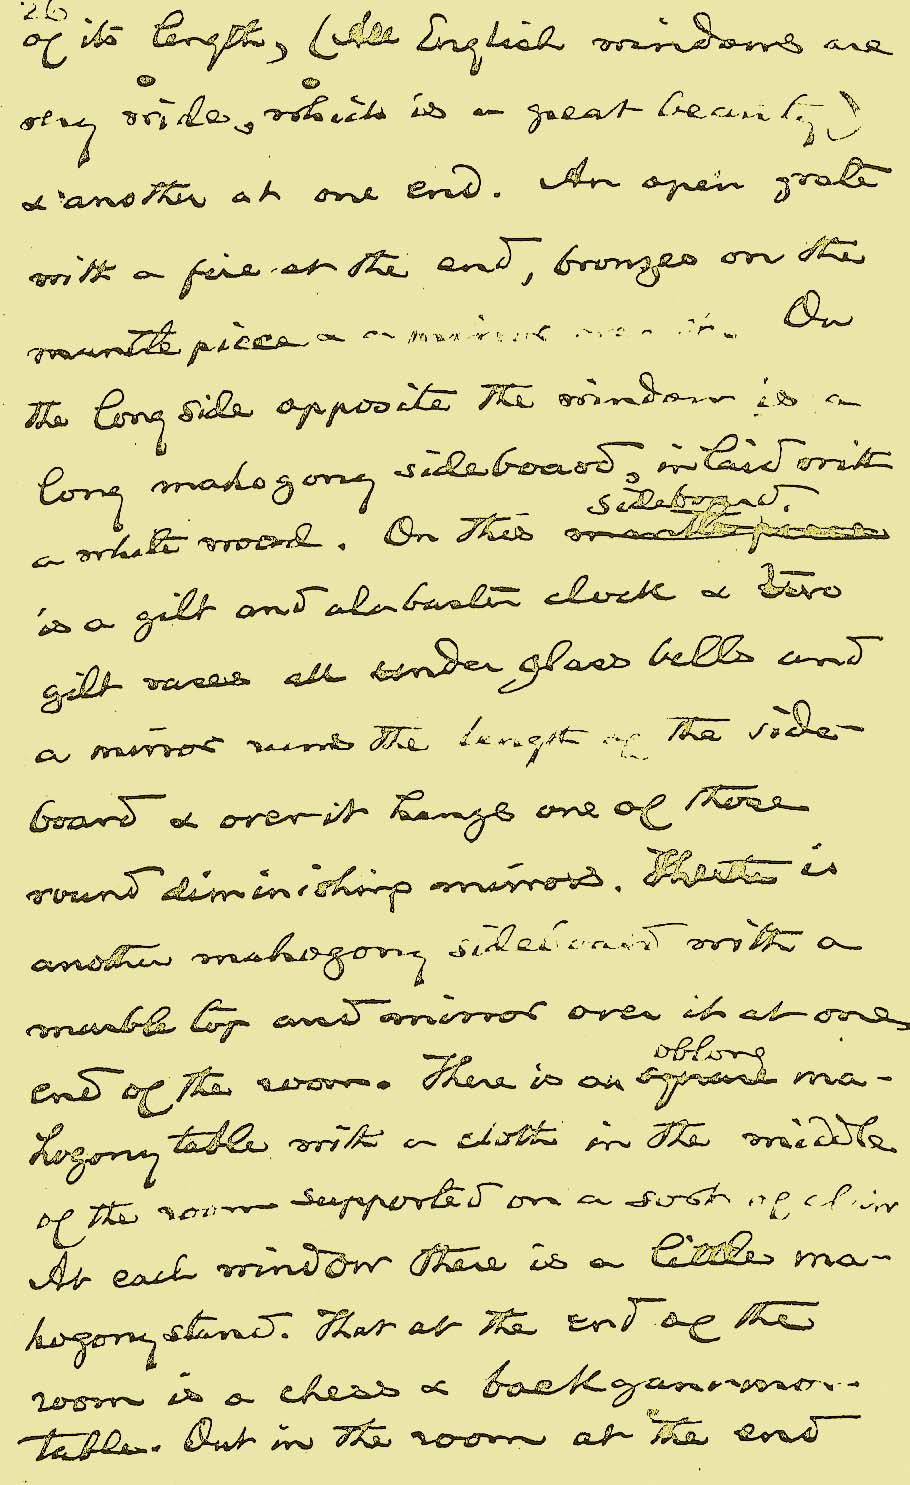 26
of its length, (All English windows are
very wide, which is a great beauty)
& another at one end. An open grate
with a fire at the end, bronzes on the
mantle piece & a mirror over it. On
the long side opposite the window is a
long mahogony sideboard, inlaid with
a white wood. On this mantle piece sideboard.
is a gilt and alabaster clock & two
gilt vases all under glass bells and
a mirror runs the length of the side
board & over it hangs one of those
round diminishing mirrors. There is
another mahogony sideboard with a
marble top and mirror over it at one
end of the room. There is an square oblong ma-
hogony table with a cloth in the middle
of the room supported on a sort of
At each window there is a little ma-
hogony stand. That at the end of the
room is a chess & backgammon
table. Out in the room at the end